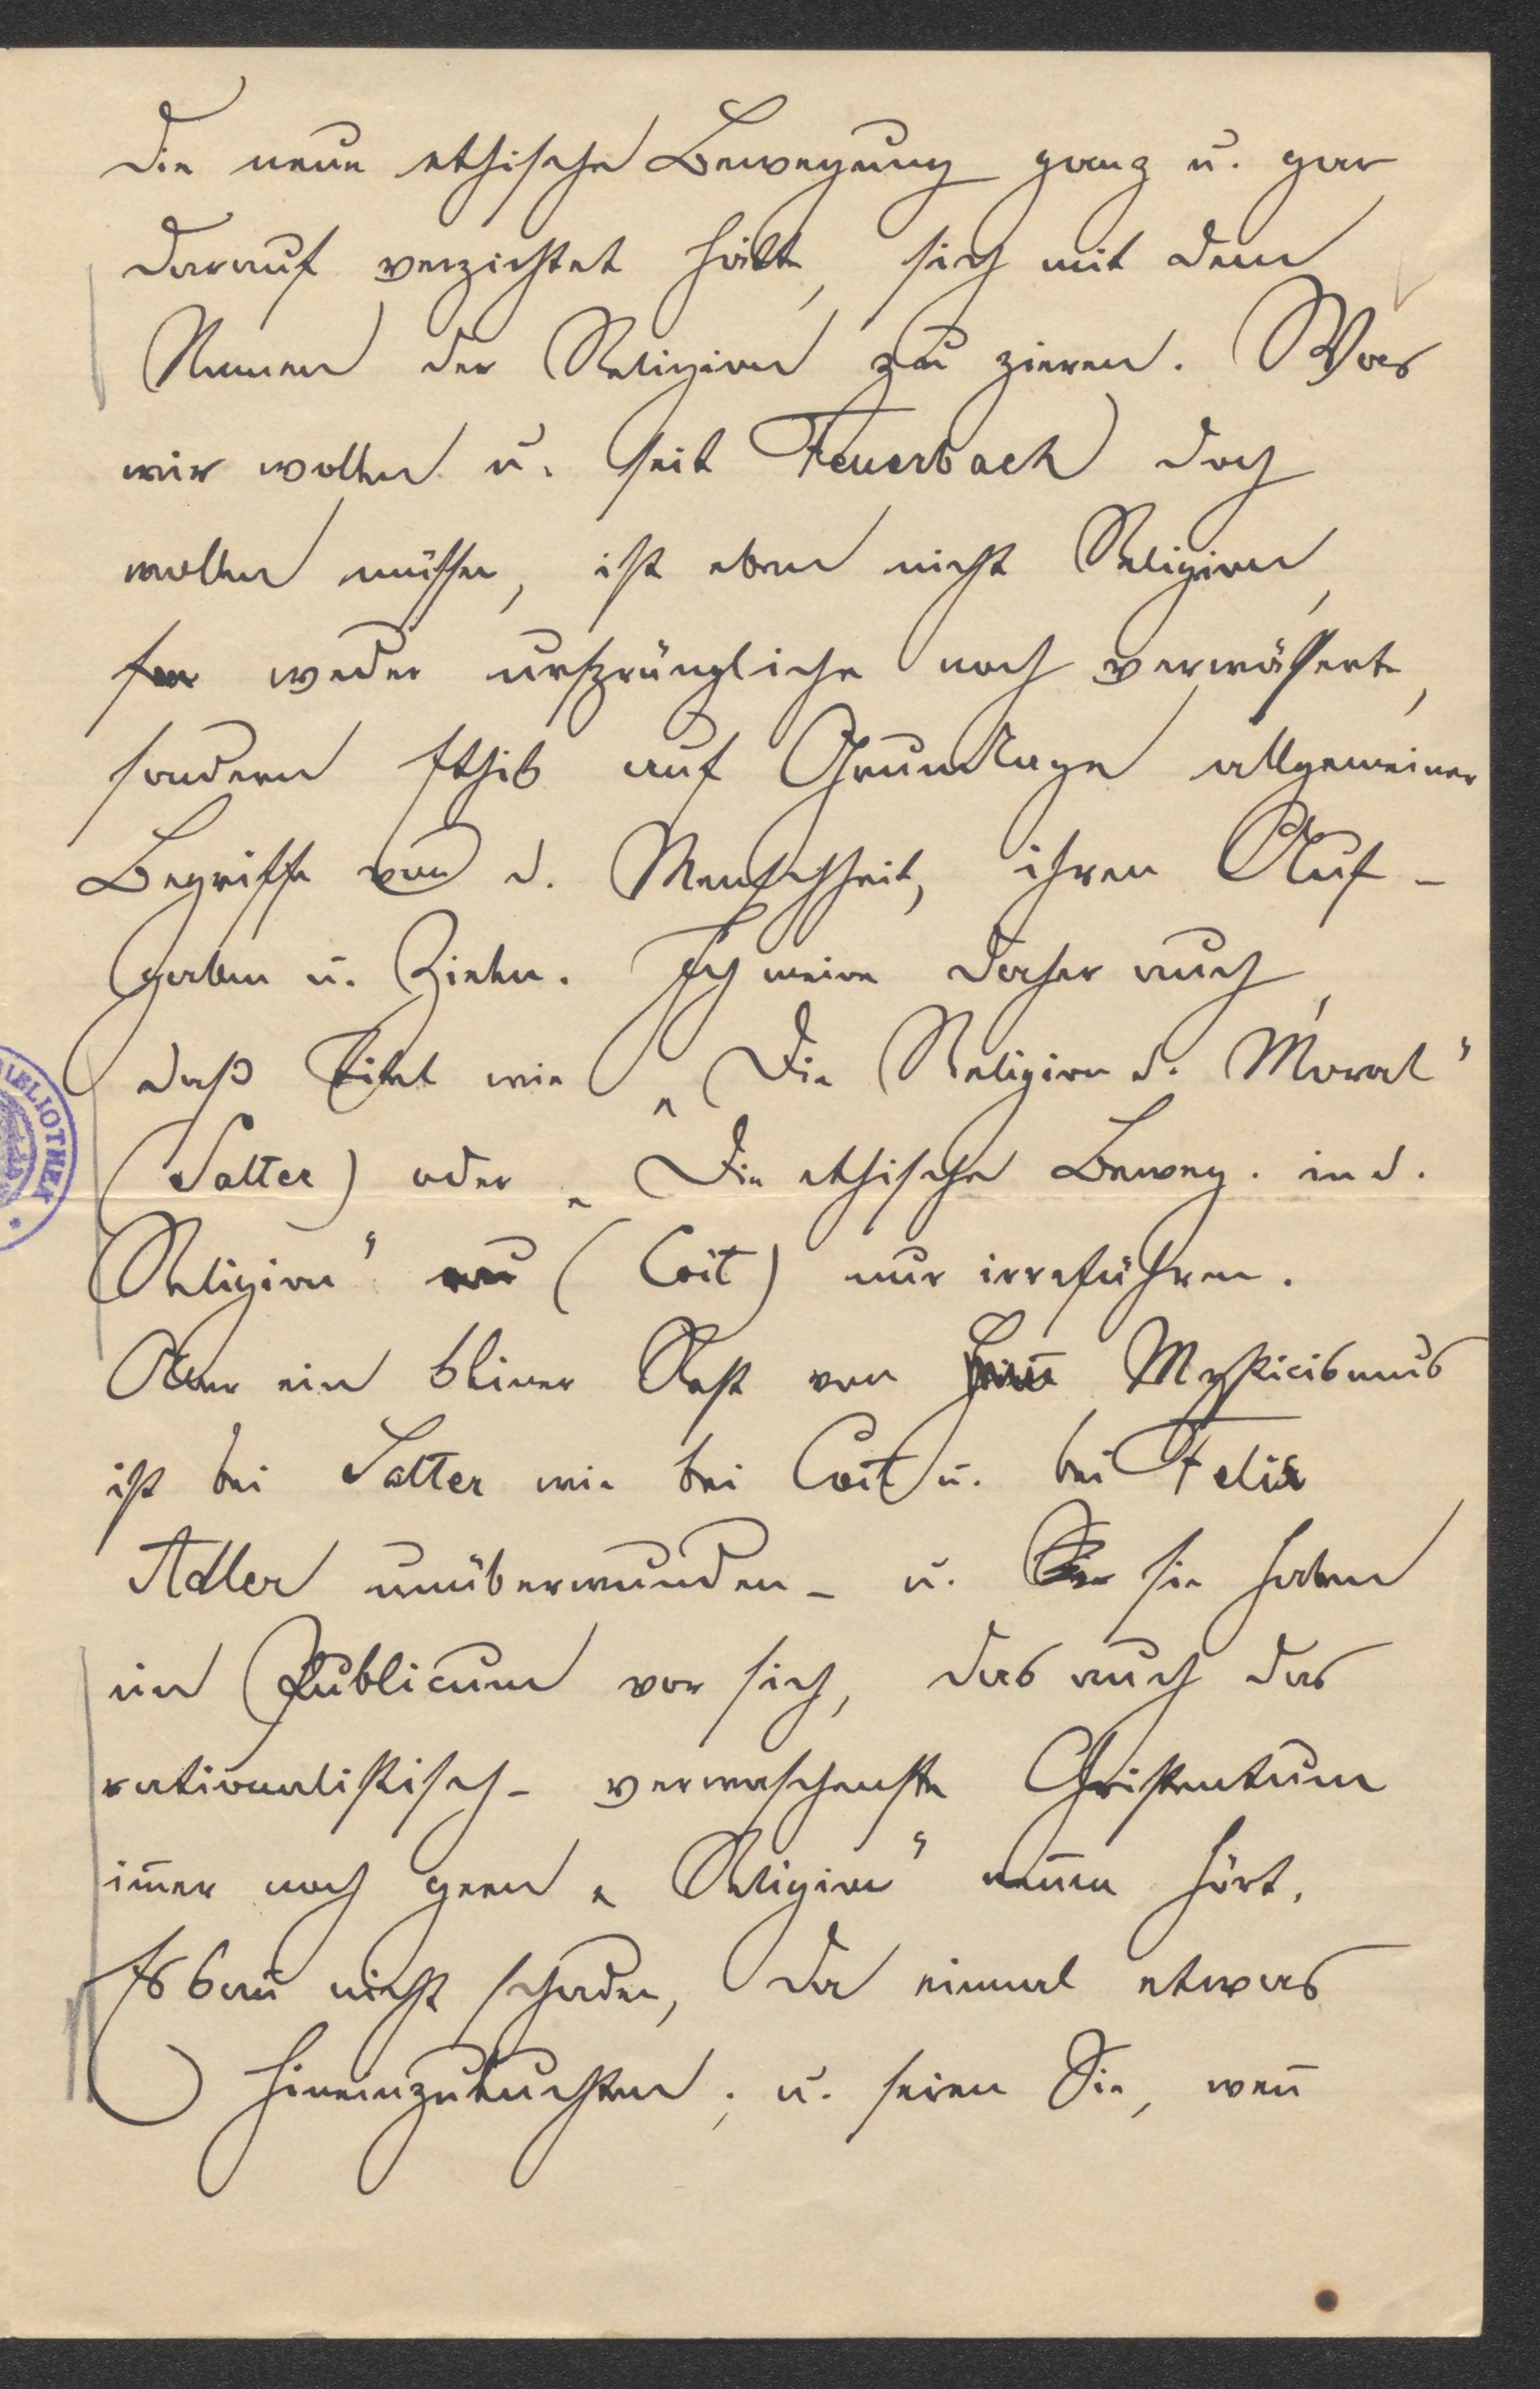 die neue ethische Bewegung ganz u. gar
darauf verzichtet hätte, sich mit dem
Namen der Religion zu zieren. Was
wir wollen u. seit Feuerbach doch
wollen müssen, ist eben nicht Religion,
weder ursprüngliche noch verwässerte,
sondern Ethik auf Grundlage allgemeiner
Begriffe von d. Menschheit, ihren Auf-
gaben u. Zielen. Ich meine daher auch,
daß Titel wie „Die Religion d. Moral“
(Salter) oder „Die ethische Beweg. in d.
Religion“ (Coit) nur irreführen.
Aber ein kleiner Rest von Mysticismus
ist bei Salter wie bei Coit u. bei Felix
Adler unüberwunden – u. sie haben
ein Publicum vor sich, das auch das
rationalistisch-verwaschenste Christentum
im̄er noch gern „Religion“ nen̄en hört.
Es kan̄ nicht schaden, da einmal etwas
hineinzuleuchten; u. seien Sie, wen̄
BIBLIOTHEK